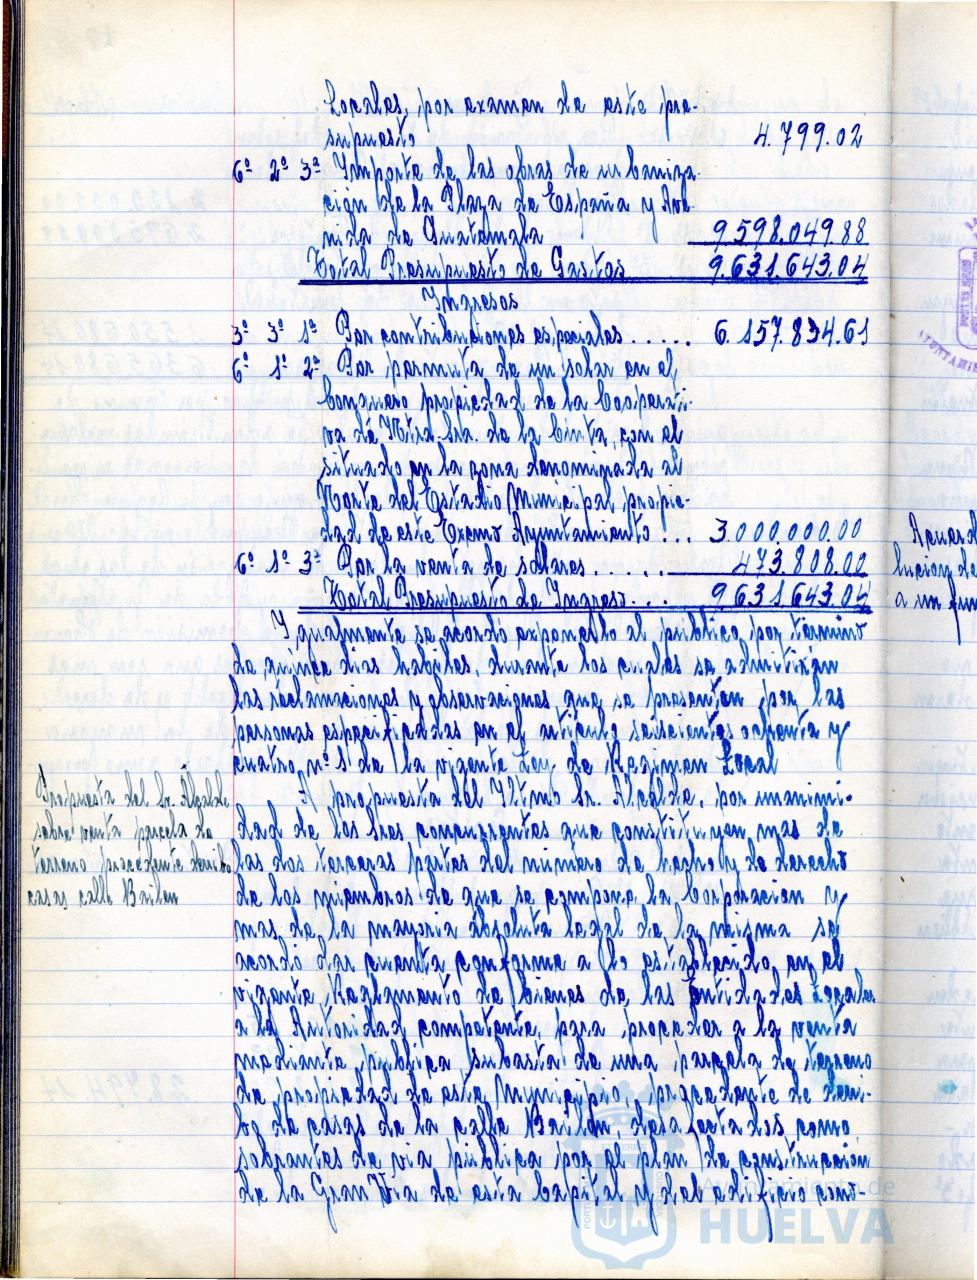 Locales, por examen de este pre-
supuesto 4.799.02
6º 2º 3º Importe de las obras de urbaniza-
ción de la Plaza de España y Ave-
nida de Guatemala 9.598.049.88
Total Presupuesto de Gastos 9.631.643.04
Ingresos
3º 3º 1º Por contribuciones especiales ..... 6.157.834.61
6º 1º 2º Por permuta de un solar en el
Conquero propiedad de la Cooperati-
va de Ntra. Sra. de la Cinta, con el
situado en la zona denominada al
Norte del Estadio Municipal propie-
dad de este Excmo Ayuntamiento ... 3.000.000.00
6º 1º 3º Por la venta de solares ...... 473.808.00
Total Presupuesto de Ingreso .... 9.631.643.04
Igualmente se acordó exponerlo al público, por término
de quince dias habiles, durante los cuales se admitirán
las reclamaciones y observaciones que se presenten por las
personas especificadas en el articulo seiscientos ochenta y
cuatro nº 1 de la vigente Ley de Regimen Local
Propuesta del Sr. Alcalde
sobre venta parcela de
terreno procedente derribo
casas calle Bailen
A propuesta del Iltmo Sr. Alcalde, por unanimi-
dad de los Sres concurrentes que constituyen mas de
las dos terceras partes del numero de hecho y de derecho
de los miembros de que se compone la Corporacion y
mas de la mayoria absoluta legal de la misma se
acordó dar cuenta conforme a lo establecido en el
vigente Reglamento de Bienes de las Entidades Locales
a la Autoridad competente, para proceder a la venta
mediante publica subasta de una parcela de terreno
de propiedad de este Municipio, procedente de derri-
bo de casas de la calle Bailén, desafectados como
sobrantes de via pública por el plan de construcción
de la Gran Via de esta Capital y del edificio cono-
Acuerd
lucion de
a un fun
Ayuntamiento de
HUELVA